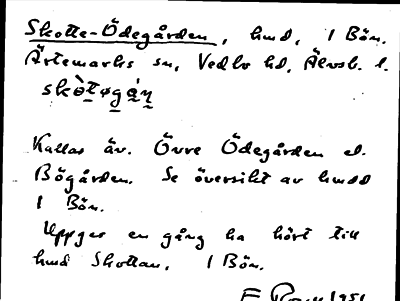 Skotte-Ödegården, hmd, 1 Bön.
Ärtemarks sn, Vedbo hd, Älvsb. l.
Kallas äv. Övre Ödegården el.
Bögården. Se översikt av hmdd
1 Bön.
Uppges en gång ha hört till
hmd Skottan, 1 Bön.